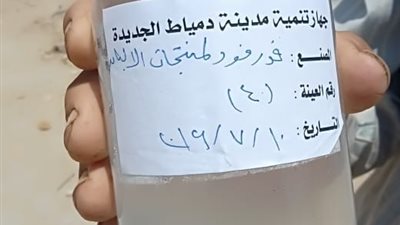 جهاز تنمية مدينة دمياط الجديدة
المصنع : فور فود لمنتجات الالبان
رقم العينة : (٤٠)
التاريخ : ١٠/٧/